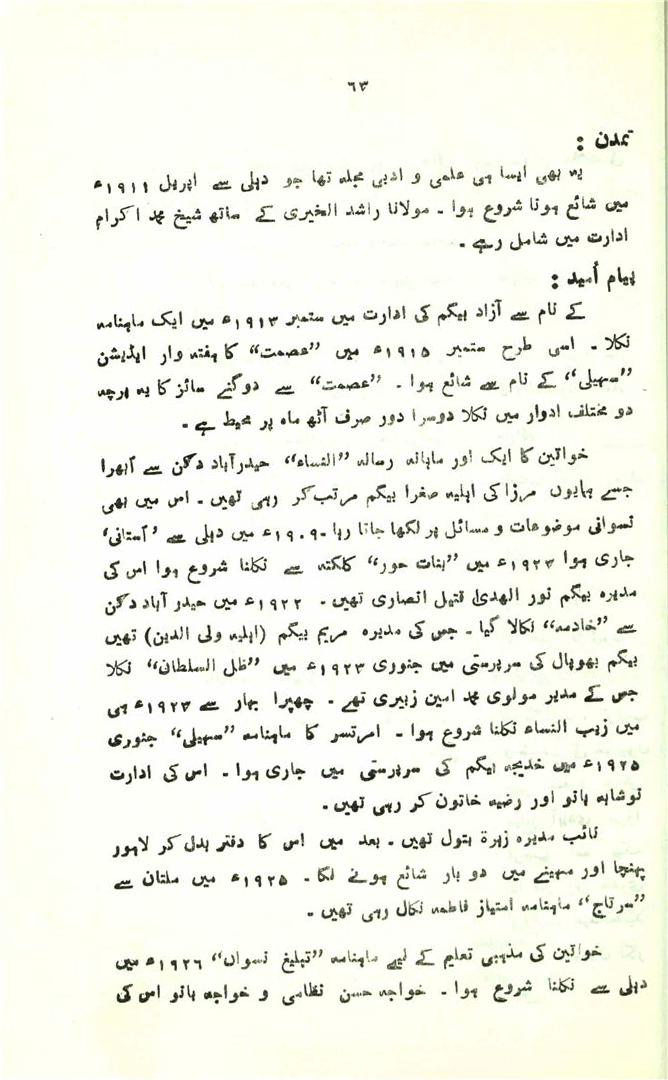 ٦٣
تمدن :
یہ بھی ایسا ہی علمی و ادبی مجلہ تھا جو دہلی سے اپریل ۱۹۱۱ء
میں شائع ہونا شروع ہوا ۔ مولانا راشد الخیری کے ساتھ شیخ محمد اکرام
ادارت میں شامل رہے ۔
پیام اُمید :
کے نام سے آزاد بیگم کی ادارت میں ستمبر ۱۹۱۳ء میں ایک ماہنامہ
نکلا ۔ اسی طرح ستمبر ۱۹۱۵ء میں ”عصمت“ کا ہفتہ وار ایڈیشن
”سہیلی“ کے نام سے شائع ہوا ۔ ”عصمت“ سے دوگنے سائز کا یہ پرچہ
دو مختلف ادوار میں نکلا دوسرا دور صرف آٹھ ماہ پر محیط ہے ۔
خواتین کا ایک اور ماہانہ رسالہ ”النساء“ حیدرآباد دکن سے ابھرا
جسے ہمایوں مرزا کی اہلیہ صغرا بیگم مرتب کر رہی تھیں ۔ اس میں بھی
نسوانی موضوعات و مسائل پر لکھا جاتا رہا ۔ ۱۹۰۹ء میں دہلی سے ’استانی‘
جاری ہوا ۱۹۲۳ء میں ”بنات حور“ کلکتہ سے نکلنا شروع ہوا اس کی
مدیرہ بیگم نور الھدیٰ قتیل انصاری تھیں ۔ ۱۹۲۲ء میں حیدر آباد دکن
سے ”خادمہ“ نکالا گیا ۔ جس کی مدیرہ مریم بیگم (اہلیہ ولی الدین) تھیں
بیگم بھوپال کی سرپرستی میں جنوری ۱۹۲۳ء میں ”ظل السلطان“ نکلا
جس کے مدیر مولوی محمد امین زبیری تھے ۔ چھپرا بہار سے ۱۹۲۳ء ہی
میں زیب النساء نکلنا شروع ہوا ۔ امرتسر کا ماہنامہ ”سہیلی“ جنوری
۱۹۲۵ء میں خدیجہ بیگم کی سرپرستی میں جاری ہوا ۔ اس کی ادارت
نوشابہ بانو اور رضیہ خاتون کر رہی تھیں ۔
نائب مدیرہ زہرۃ بتول تھیں ۔ بعد میں اس کا دفتر بدل کر لاہور
پہنچا اور مہینے میں دو بار شائع ہونے لگا ۔ ۱۹۲۵ء میں ملتان سے
”سرتاج“ ماہنامہ امتیاز فاطمہ نکال رہی تھیں ۔
خواتین کی مذہبی تعلیم کے لیے ماہنامہ ”تبلیغ نسواں“ ۱۹۲۶ء میں
دہلی سے نکلنا شروع ہوا ۔ خواجہ حسن نظامی و خواجہ بانو اس کی